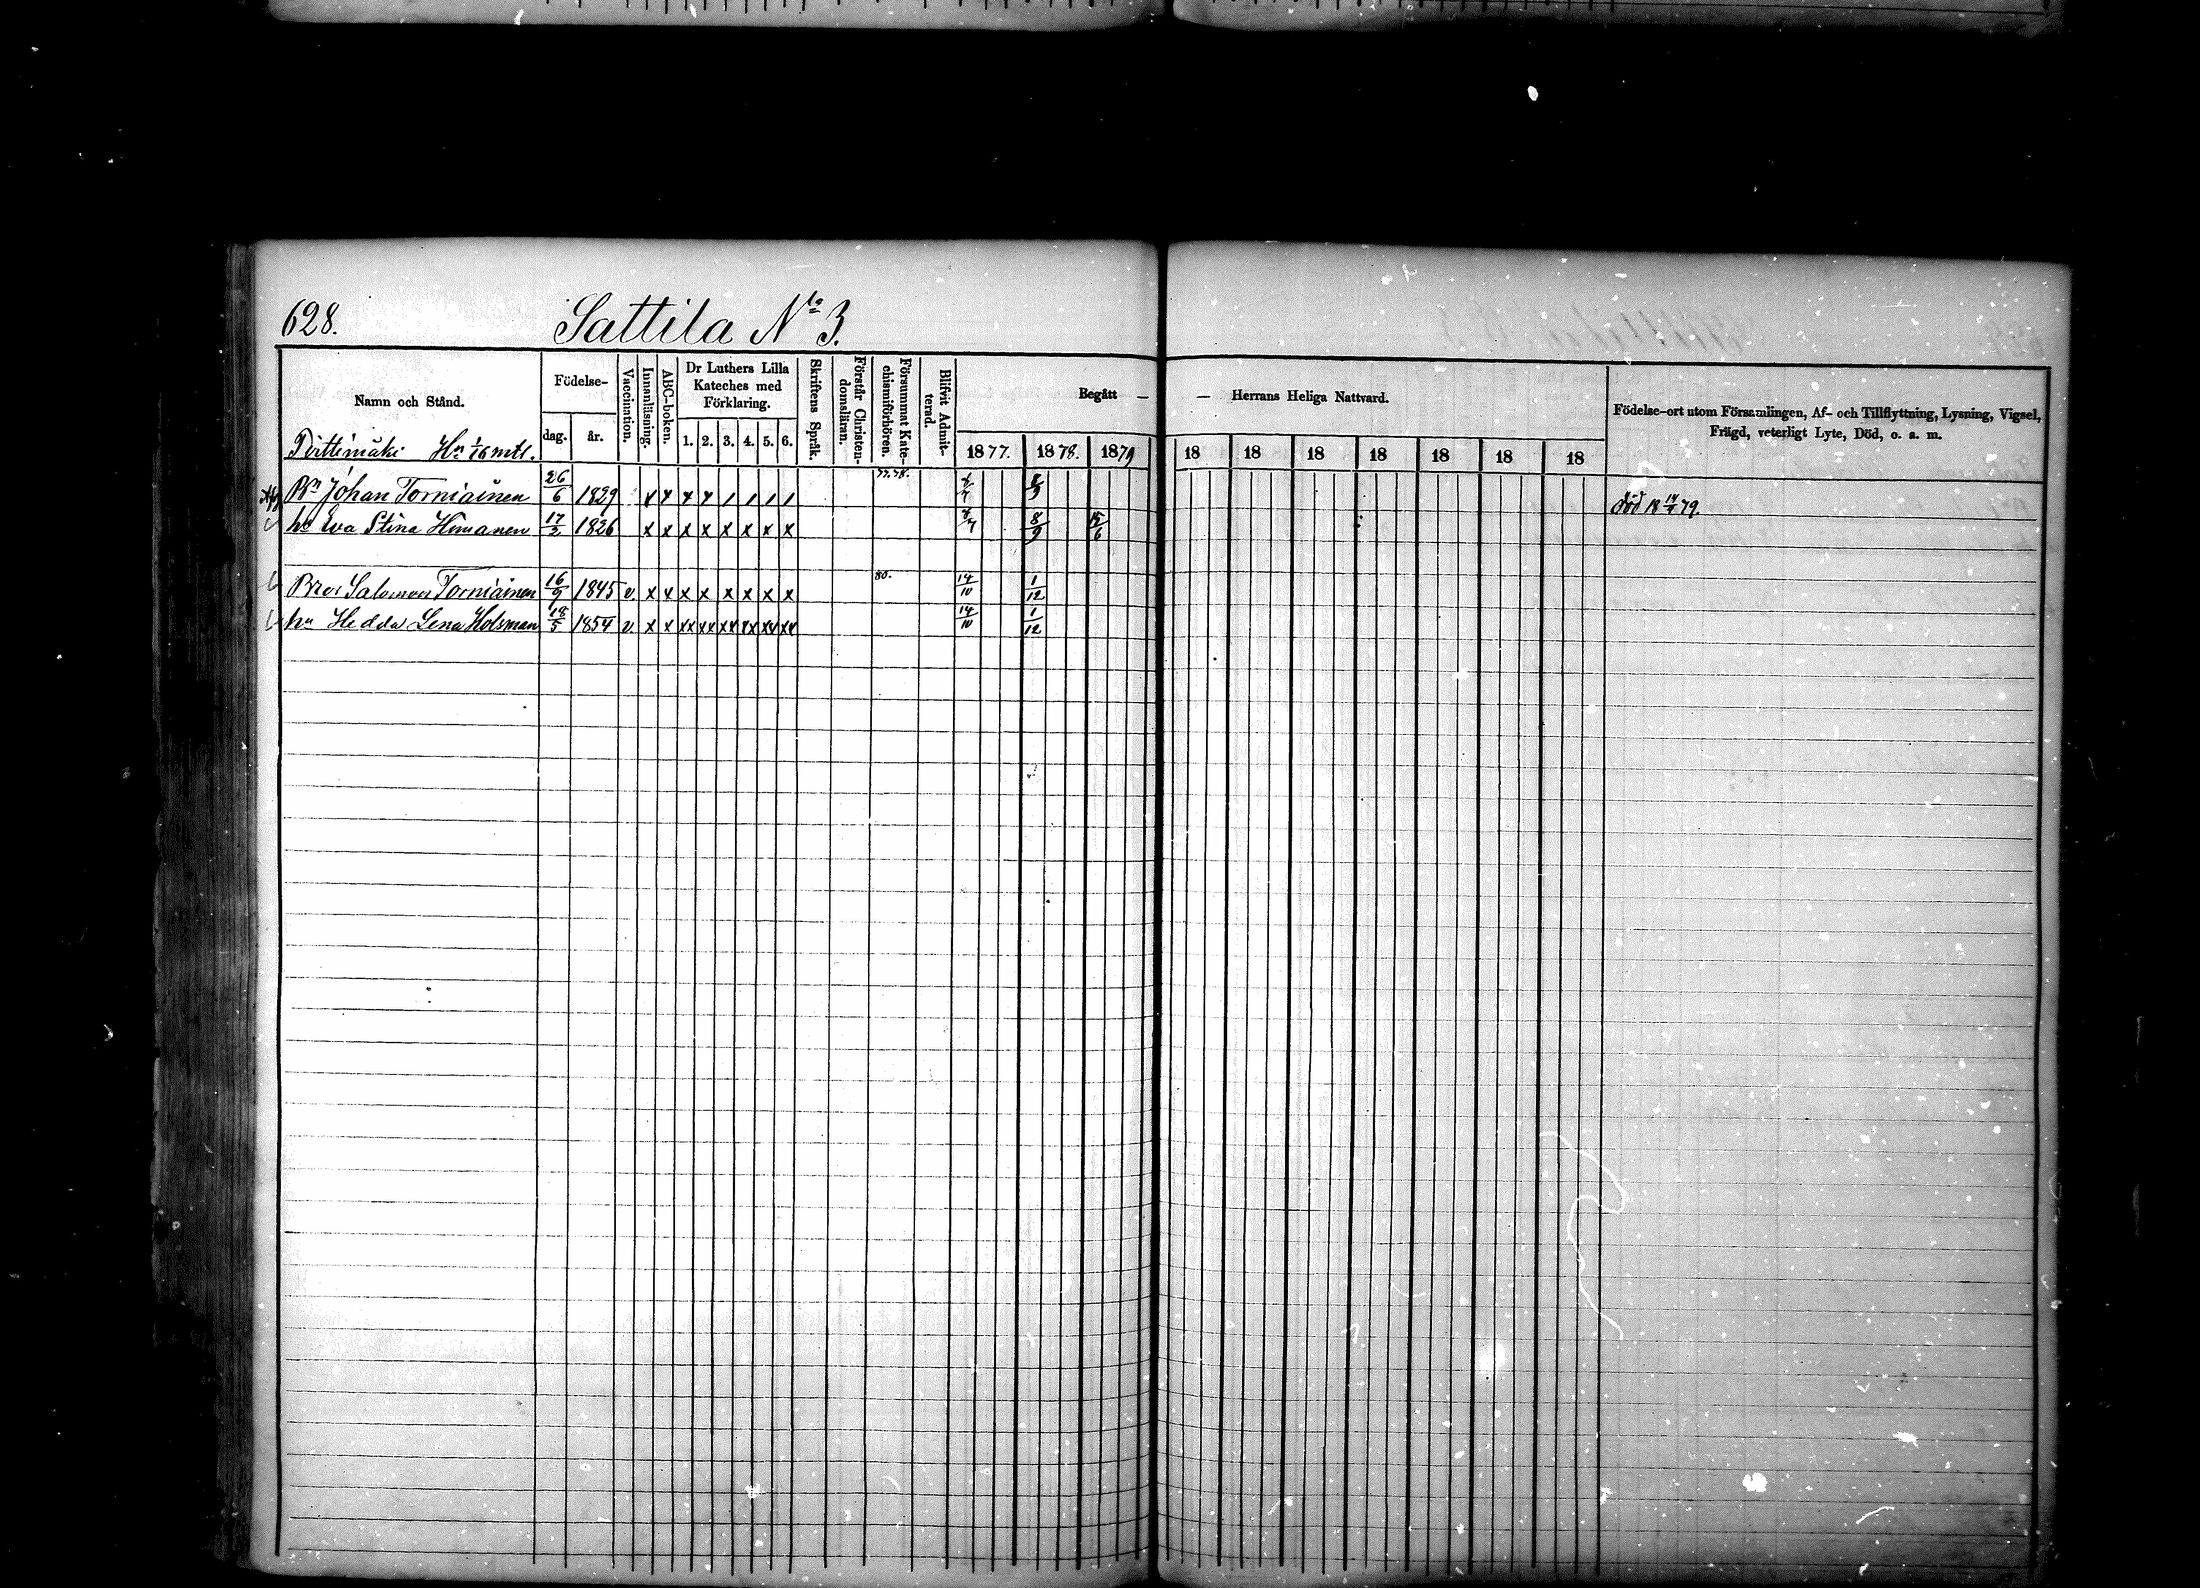 628. Sattila No 3.
Namn och Stånd.
Födelse-
dag. år.
Vaccination.
Innanläsning.
ABC-boken.
Dr Luthers Lilla Kateches med Förklaring.
1. 2. 3. 4. 5. 6.
Skriftens Språk.
Förstår Christen-domsläran.
Försummat Kate-chismiförhören.
Blifvit Admit-terad.
Begått — — Herrans Heliga Nattvard.
1877. 1878. 1879 18 18 18 18 18 18 18
Födelse-ort utom Församlingen, Af- och Tillflyttning, Lysning, Vigsel,
Frägd, veterligt Lyte, Död, o. a. m.
Pirttimäki Hn 1/16 mtl.
Bn Johan Torniainen 26/6 1829 x x x x 1 1 1 1 77.78. 8/9 död 18 14/4 79.
hu Eva Stina Himanen 17/2 1826 x x x x x x x x 8/9 15/6
Bror Salomon Torniainen 16/9 1845 v. x x x x x x x x 80. 14/10 1/12
hu Hedda Lena Holsman 18/5 1854 v. x x xx xx xx xx xx xx 14/10 1/12